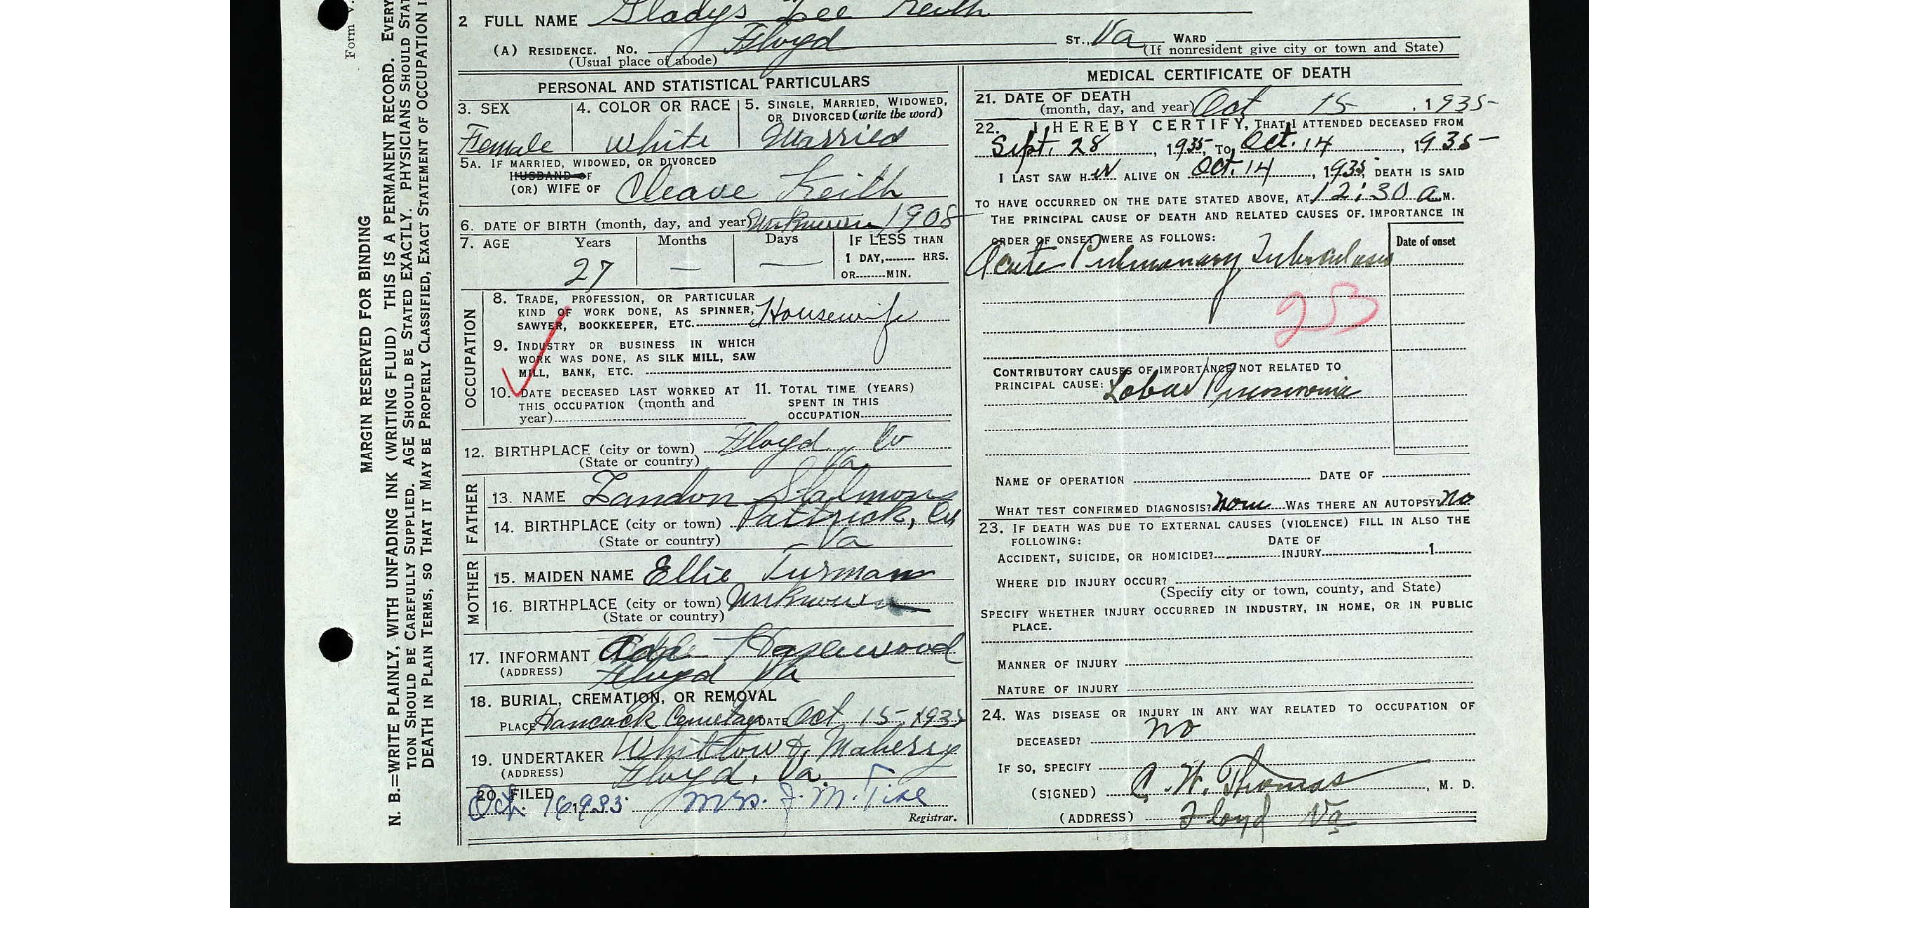 Form V.
MARGIN RESERVED FOR BINDING
N. B.—WRITE PLAINLY, WITH UNFADING INK (WRITING FLUID) THIS IS A PERMANENT RECORD. EVERY
TION SHOULD BE CAREFULLY SUPPLIED. AGE SHOULD BE STATED EXACTLY. PHYSICIANS SHOULD STAT
DEATH IN PLAIN TERMS, SO THAT IT MAY BE PROPERLY CLASSIFIED, EXACT STATEMENT OF OCCUPATION I
2 FULL NAME Gladys Lee Keith
(A) RESIDENCE. No. Floyd ST., Va WARD
(Usual place of abode) (If nonresident give city or town and State)
PERSONAL AND STATISTICAL PARTICULARS
3. SEX 4. COLOR OR RACE 5. SINGLE, MARRIED, WIDOWED,
OR DIVORCED (write the word)
Female White Married
5A. IF MARRIED, WIDOWED, OR DIVORCED
HUSBAND OF
(OR) WIFE OF Cleave Keith
6. DATE OF BIRTH (month, day, and year) Unknown 1908
7. AGE Years Months Days IF LESS THAN
1 DAY,...... HRS.
27 — — OR......MIN.
OCCUPATION
8. TRADE, PROFESSION, OR PARTICULAR
KIND OF WORK DONE, AS SPINNER,
SAWYER, BOOKKEEPER, ETC. Housewife
9. INDUSTRY OR BUSINESS IN WHICH
WORK WAS DONE, AS SILK MILL, SAW
MILL, BANK, ETC.
10. DATE DECEASED LAST WORKED AT 11. TOTAL TIME (YEARS)
THIS OCCUPATION (month and SPENT IN THIS
year) OCCUPATION
12. BIRTHPLACE (city or town) Floyd Co
(State or country) Va
FATHER
13. NAME Landon Slalmons
14. BIRTHPLACE (city or town) Pattrick, Co
(State or country) Va
MOTHER
15. MAIDEN NAME Ellie Turman
16. BIRTHPLACE (city or town) Unknown
(State or country)
17. INFORMANT Hazelwood
(ADDRESS) Floyd Va
18. BURIAL, CREMATION, OR REMOVAL
PLACE Hancock Cemetary DATE Oct 15- 1935
19. UNDERTAKER Whitlow & Maberry
(ADDRESS) Floyd, Va.
20. FILED
Oct. 16 1935 Mrs. J. M.
Registrar.
MEDICAL CERTIFICATE OF DEATH
21. DATE OF DEATH
(month, day, and year) Oct 15 , 1935-
22. I HEREBY CERTIFY, THAT I ATTENDED DECEASED FROM
Sept. 28 , 1935, TO Oct. 14 , 1935-
I LAST SAW HER ALIVE ON Oct. 14 , 1935 DEATH IS SAID
TO HAVE OCCURRED ON THE DATE STATED ABOVE, AT 12:30 a.M.
THE PRINCIPAL CAUSE OF DEATH AND RELATED CAUSES OF IMPORTANCE IN
ORDER OF ONSET WERE AS FOLLOWS: Date of onset
Acute Pulmonary Tuberculosis
23
CONTRIBUTORY CAUSES OF IMPORTANCE NOT RELATED TO
PRINCIPAL CAUSE: Lobar Pneumonia
NAME OF OPERATION DATE OF
WHAT TEST CONFIRMED DIAGNOSIS? None WAS THERE AN AUTOPSY? no
23. IF DEATH WAS DUE TO EXTERNAL CAUSES (VIOLENCE) FILL IN ALSO THE
FOLLOWING: DATE OF
ACCIDENT, SUICIDE, OR HOMICIDE? INJURY 1
WHERE DID INJURY OCCUR?
(Specify city or town, county, and State)
SPECIFY WHETHER INJURY OCCURRED IN INDUSTRY, IN HOME, OR IN PUBLIC
PLACE.
MANNER OF INJURY
NATURE OF INJURY
24. WAS DISEASE OR INJURY IN ANY WAY RELATED TO OCCUPATION OF
DECEASED? no
IF SO, SPECIFY
(SIGNED) C. W. Thomas , M. D.
(ADDRESS) Floyd Va